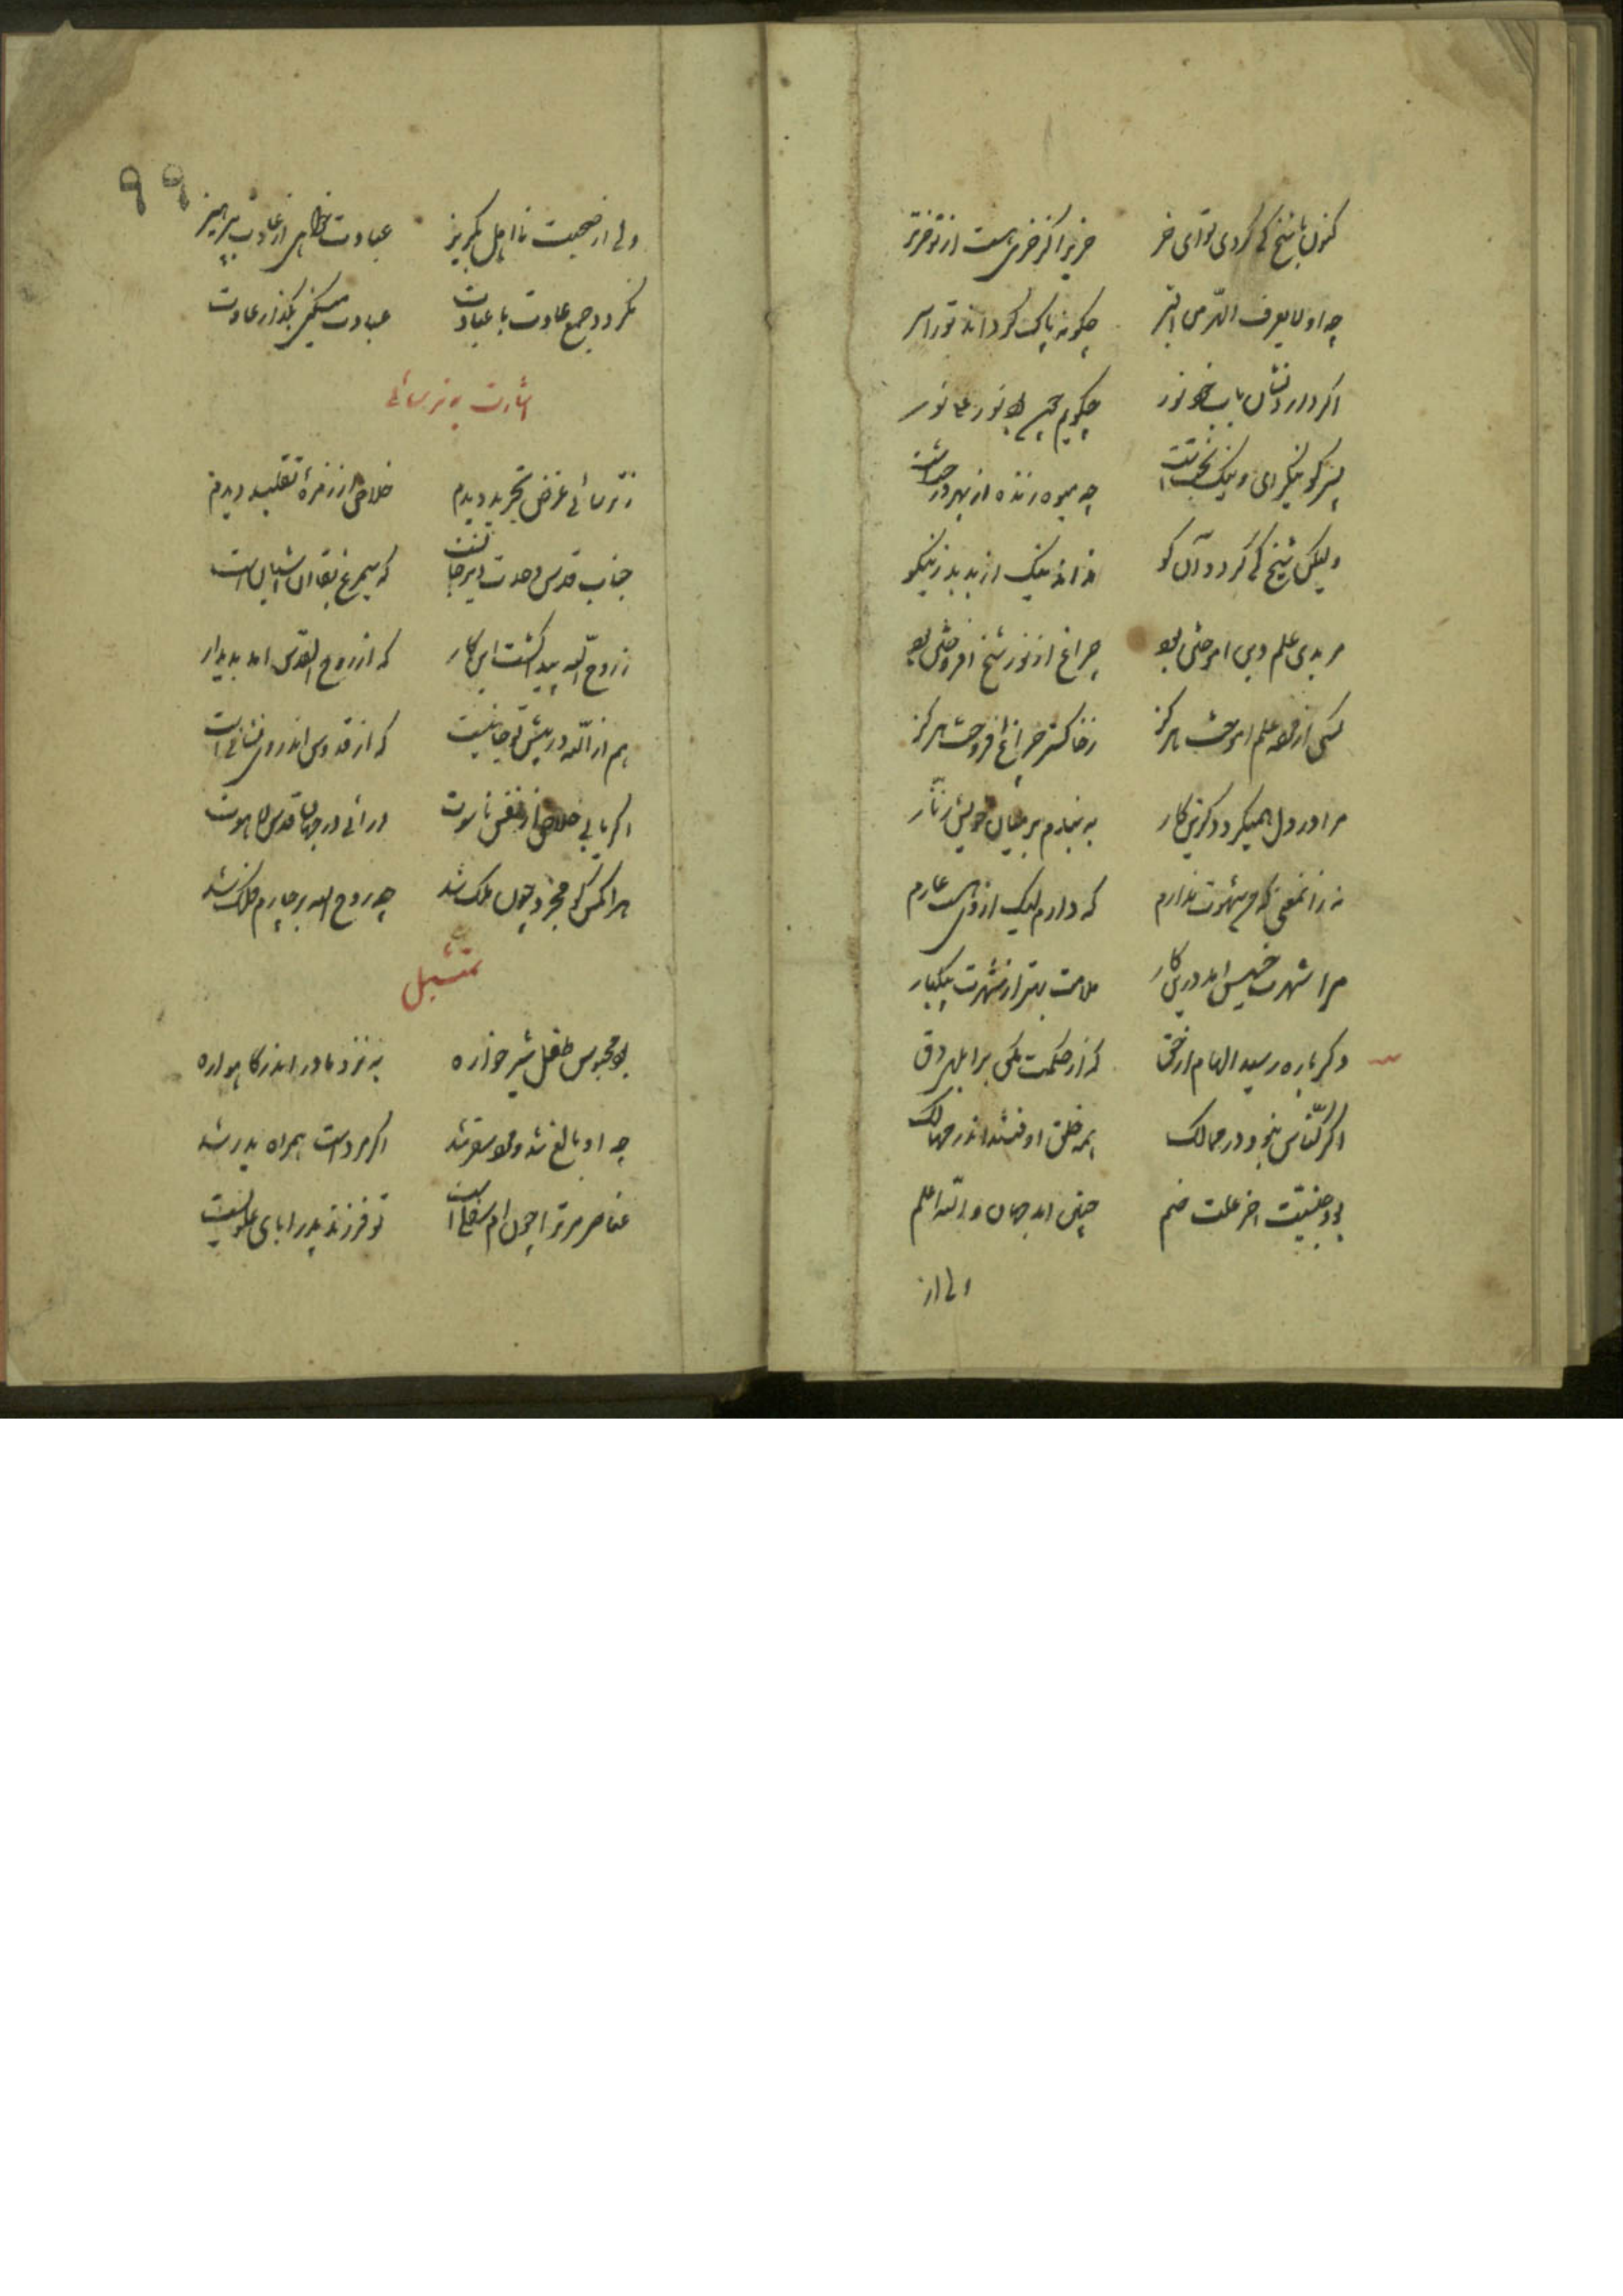 کنون با شیخ کی کردی تو ای خر خریرا کز خری هست از تو خرتر
چه او لا یعرف الهر من البر چکونه پاک کرداند تو را سر
اکر دارد نشان باب خود نور چکویم چون بود نور علی نور
پسر کو نیکرای و نیک بختست چه میوه زنده از بهر درختست
ولیکن شیخ کی کردد آن کو نداند نیک از بد بد ز نیکو
مریدی علم دین اموختن بود چراغ از نور شیخ افروختن بود
کسی از مرده علم اموخت هرکز ز خاکستر چراغ افروخت هرکز
مرا در دل همیکردد کزین کار به بندم بر میان خویش زنار
نه زان معنی که من شهرت ندارم که دارم لیک از وی هست عارم
مرا شهرت خسیس امد درین کار ملامت بهتر از شهرت بیکبار
دکرباره رسید الهام از حق که از حکمت مکن بر ابلهی دق
اکر کناس نبود در ممالک همه خلق اوفتند اندر مهالک
بود جنسیت اخر علت ضم چنین امد جهان والله اعلم
ولی از
۹۹
ولی از صحبت نا اهل بکریز عبادت خواهی از عادت بپرهیز
نکردد جمع عادت با عبادت عبادت میکنی بکذار عادت
اشارت به ترسائی
ز ترسائی غرض تجرید دیدم خلاص از زمرهٔ تقلید دیدم
جناب قدس وحدت دیر جانست که سیمرغ بقا را اشیانست
ز روح الله پیدا کشت این کار که از روح القدس امد پدیدار
هم از الله در پیش تو جانیست که از قدوس اندر وی نشانی است
اکر یابی خلاص از نفس ناسوت درائی در جهان قدس لاهوت
هر انکس کو مجرد چون ملک شد چه روح الله بر چارم فلک شد
تمثیل
بود محبوس طفل شیرخواره به نزد مادر اندر کاهواره
چه او بالغ شد و مرد سفر شد اکر مردست همراه پدر شد
عناصر مر ترا چون ام سفلیست تو فرزند پدر ابای علویست